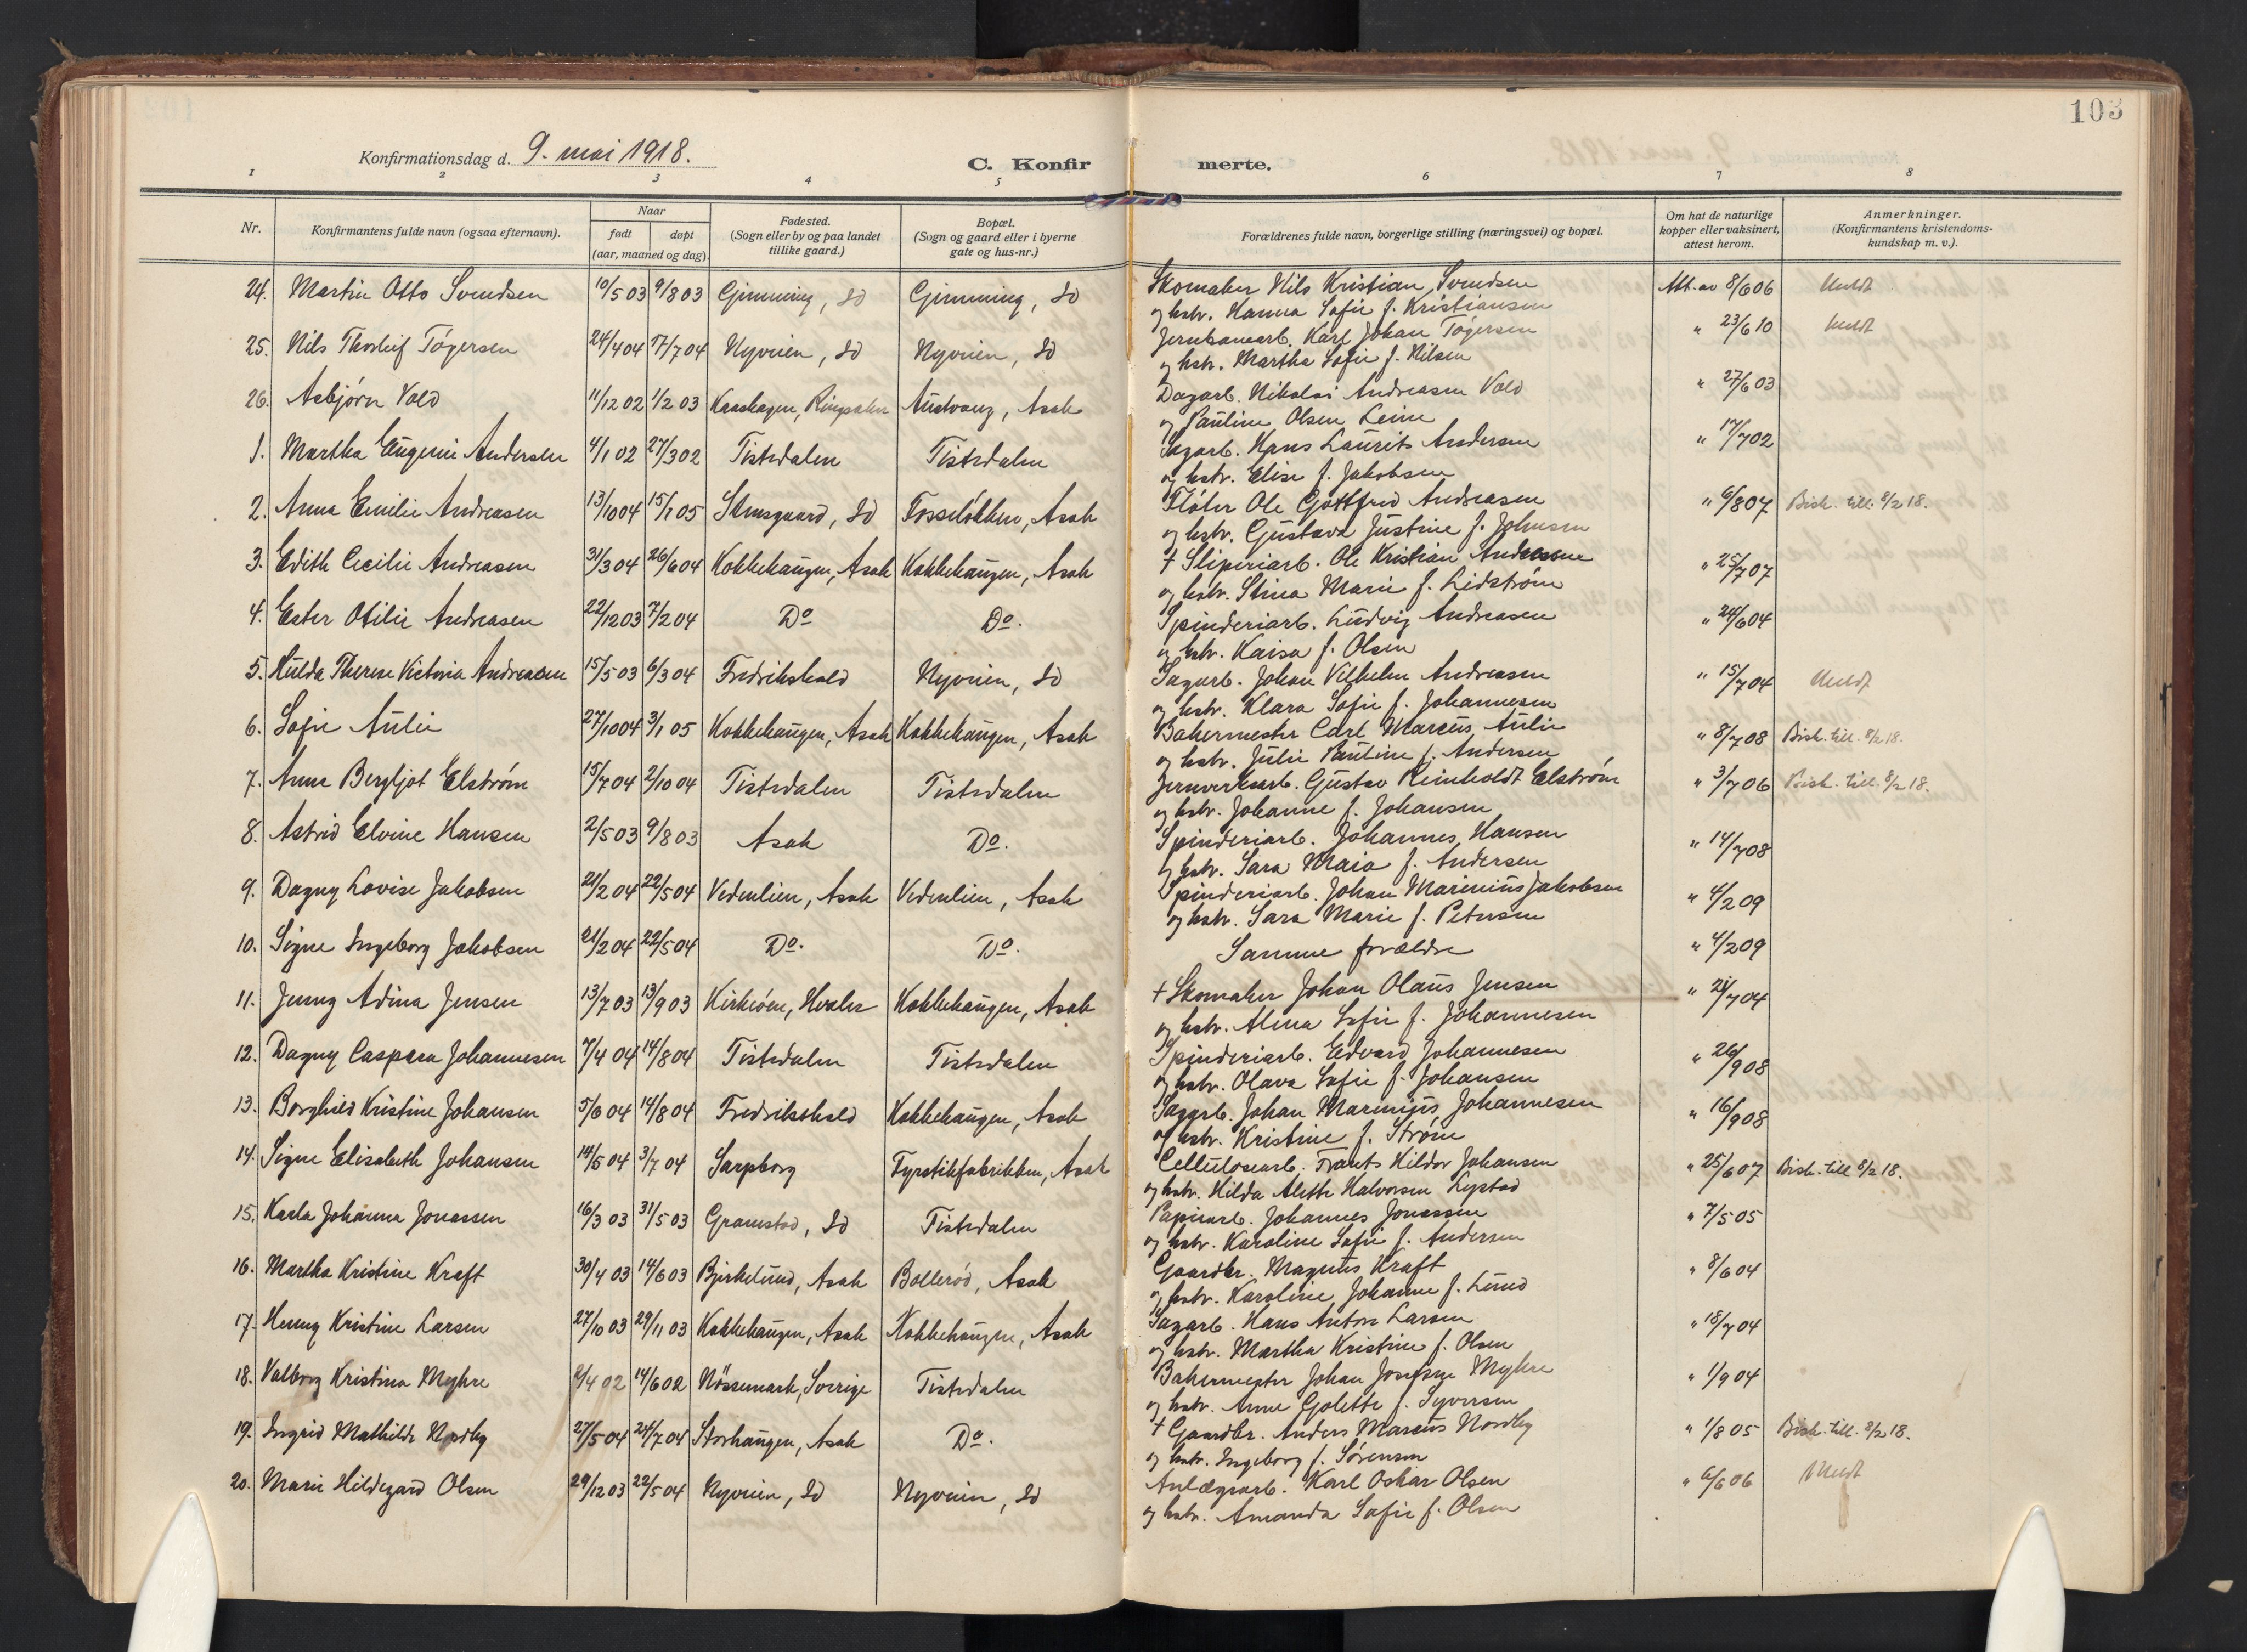 103
Konfirmationsdag d. 9. mai 1918.
C. Konfirmerte.
1 2 3 4 5 6 7 8
Nr.
Konfirmantens fulde navn (ogsaa efternavn).
Naar
født døpt
(aar, maaned og dag).
Fødested.
(Sogn eller by og paa landet
tillike gaard.)
Bopæl.
(Sogn og gaard eller i byerne
gate og hus-nr.)
Forældrenes fulde navn, borgerlige stilling (næringsvei) og bopæl.
Om hat de naturlige
kopper eller vaksinert,
attest herom.
Anmerkninger.
(Konfirmantens kristendoms-
kundskap m. v.).
24. Martin Otto Svendsen 10/5 03 9/8 03 Gimming, Id Gimming, Id Skomaker Nils Kristian Svendsen Att. av 8/6 06
og hstr. Hanna Sofie f. Kristiansen
25. Nils Thorleif Tøgersen 24/4 04 17/7 04 Nyveien, Id Nyveien, Id Jernbanearb. Karl Johan Tøgersen " 23/6 10
og hstr. Martha Sofie f. Nilsen
26. Asbjørn Vold 11/12 02 1/2 03 Ringsaker Austvang, Asak Dagarb. Nikolai Andreasen Vold " 27/6 03
og Pauline Olsen Leine
1. Martha Eugenie Andersen 4/1 02 27/3 02 Tistedalen Tistedalen Sagarb. Hans Laurits Andersen " 17/7 02
og hstr. Elise f. Jakobsen
2. Anna Emilie Andreasen 13/10 04 15/1 05 Stensgaard, Id Fosseløkken, Asak Fløter Ole Gottfred Andreasen " 6/8 07 Bisk. till. 8/2 18.
og hstr. Gustava Justine f. Johnsen
3. Edith Cecilie Andreasen 31/3 04 26/6 04 Kokkehaugen, Asak Kokkehaugen, Asak † Sliperiarb. Ole Kristian Andreasen " 25/7 07
og hstr. Stina Marie f. Lidstrøm
4. Ester Otilie Andreasen 22/12 03 7/2 04 Do Do. Spinderiarb. Ludvig Andreasen " 24/6 04
og hstr. Kaisa f. Olsen
5. Hulda Therese Victoria Andreasen 15/5 03 6/3 04 Fredrikshald Nyveien, Id Sagarb. Johan Vilhelm Andreasen " 15/7 04
og hstr. Klara Sofie f. Johannesen
6. Sofie Aulie 27/10 04 3/1 05 Kokkehaugen, Asak Kokkehaugen, Asak Bakermester Carl Marcus Aulie " 8/7 08 Bisk. till. 8/2 18.
og hstr. Julie Pauline f. Andersen
7. Anna Bergljot Elstrøm 15/7 04 2/10 04 Tistedalen Tistedalen Jernverksarb. Gustav Reinholdt Elstrøm " 3/7 06 Bisk. till. 8/2 18.
og hstr. Johanne f. Johansen
8. Astrid Elvine Hansen 2/5 03 9/8 03 Asak Do. Spinderiarb. Johannes Hansen " 14/7 08
og hstr. Sara Maia f. Andersen
9. Dagny Lovise Jakobsen 21/2 04 22/5 04 Vedenlien, Asak Vedenlien, Asak Spinderiarb. Johan Marinius Jakobsen " 4/2 09
og hstr. Sara Marie f. Petersen
10. Signe Ingeborg Jakobsen 21/2 04 22/5 04 Do. Do. Samme forældre " 4/2 09
11. Jenny Adina Jensen 13/7 03 13/9 03 Kirkeøen, Hvaler Kokkehaugen, Asak † Skomaker Johan Olaus Jensen " 21/7 04
og hstr. Alma Sofie f. Johannesen
12. Dagny Caspara Johannesen 7/4 04 14/8 04 Tistedalen Tistedalen Spinderiarb. Edvard Johannesen " 26/9 08
og hstr. Olava Sofie f. Johansen
13. Borghild Kristine Johansen 5/6 04 14/8 04 Fredrikshald Kokkehaugen, Asak Sagarb. Johan Marinius Johannesen " 16/9 08
og hstr. Kristine f. Strøm
14. Signe Elisabeth Johansen 14/5 04 3/7 04 Sarpborg Fyrstikfabrikken, Asak Cellulosearb. Frants Hildor Johansen " 25/6 07 Bisk. till 8/2 18.
og hstr. Hilda Alette Halvorsen Lystad
15. Karla Johanna Jonassen 16/3 03 31/5 03 Gramstad, Id Tistedalen Papirarb. Johannes Jonassen " 7/5 05
og hstr. Karoline Sofie f. Andersen
16. Martha Kristine Kraft 30/4 03 14/6 03 Bjerkelund, Asak Bollerød, Asak Gaardbr. Magnus Kraft " 8/6 04
og hstr. Karoline Johanne f. Lund
17. Henny Kristine Larsen 27/10 03 29/11 03 Kokkehaugen, Asak Kokkehaugen, Asak Sagarb. Hans Anton Larsen " 18/7 04
og hstr. Martha Kristine f. Olsen
18. Valborg Kristina Myhre 8/4 02 14/6 02 Nössemark, Sverige Tistedalen Bakermester Johan Josefsen Myhre " 1/9 04
og hstr. Anne Golette f. Syversen
19. Ingrid Mathilde Nordby 27/5 04 24/7 04 Storhaugen, Asak Do. † Gaardbr. Anders Marcus Nordby " 1/8 05 Bisk. till. 8/2 18.
og hstr. Ingeborg f. Sørensen
20. Marie Hildegard Olsen 29/12 03 22/5 04 Nyveien, Id Nyveien, Id Anlægsarb. Karl Oskar Olsen " 6/6 06
og hstr. Amanda Sofie f. Olsen